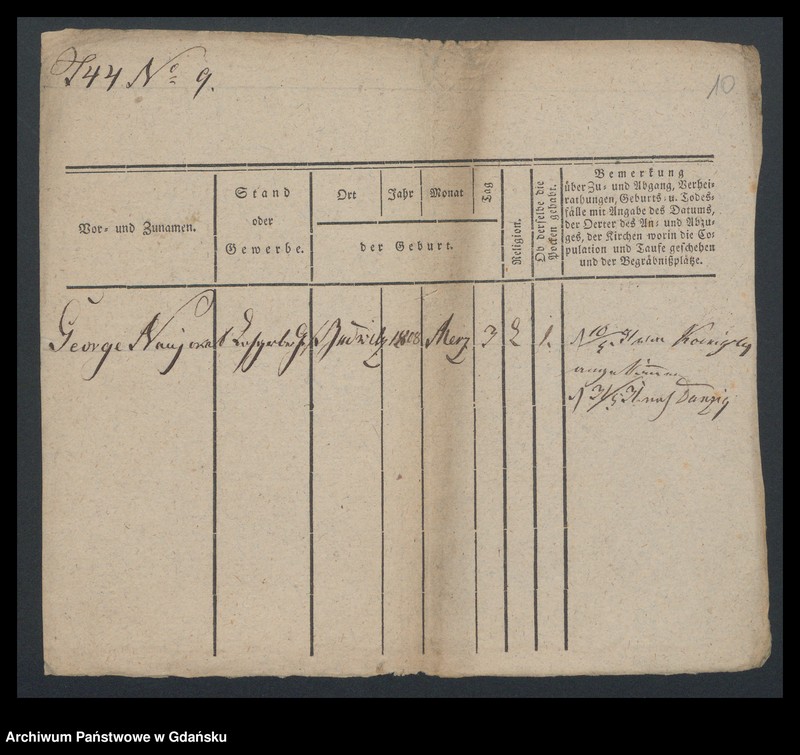 J44 No 9.
10
Vor- und Zunamen.
Stand
oder
Gewerbe.
Ort
Jahr
Monat
Tag
der Geburt.
Religion.
Ob derselbe die
Pocken gehabt.
Bemerkung
über Zu- und Abgang, Verhei-
rathungen, Geburts- u. Todes-
fälle mit Angabe des Datums,
der Oerter des An- und Abzu-
ges, der Kirchen worin die Co-
pulation und Taufe geschehen
und der Begräbnißplätze.
George
1808
Merz
3
1.
31 von
31 nach Danzig
Archiwum Państwowe w Gdańsku